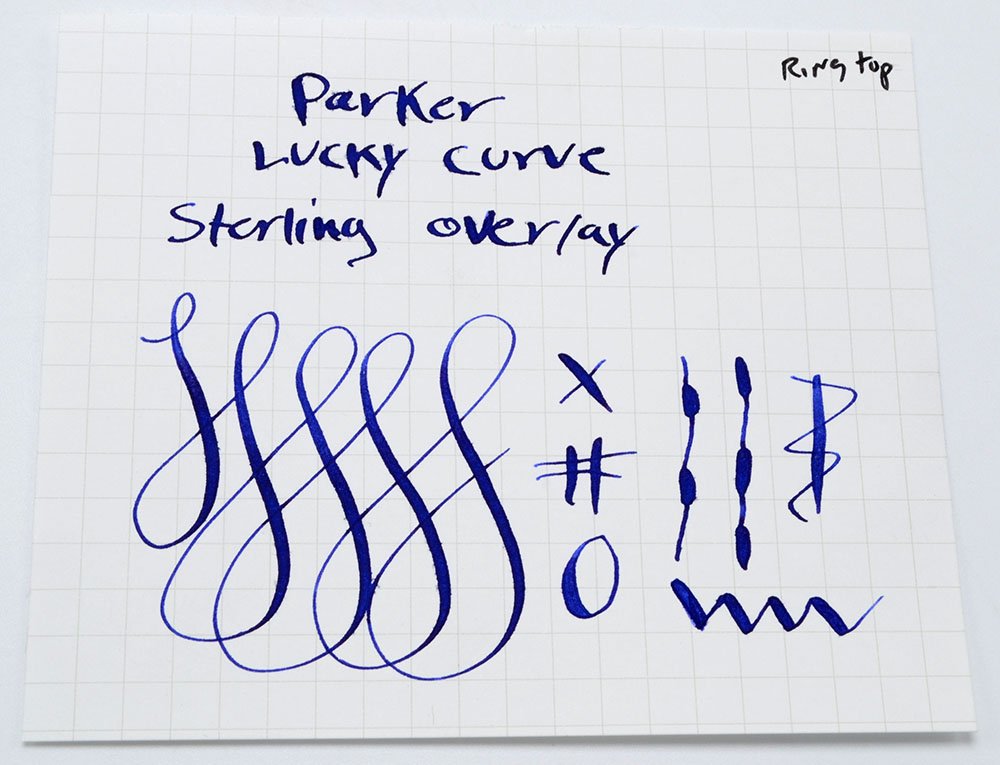 Ring top
Parker
Lucky Curve
Sterling overlay
X
#
O